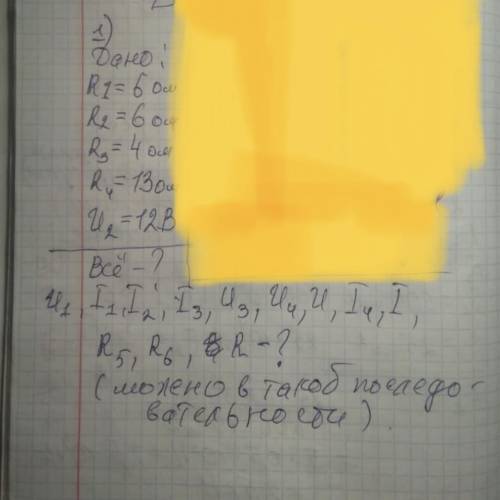 1)
Дано:
R1 = 6 ом
R2 = 6 ом
R3 = 4 ом
R4 = 13 ом
U2 = 12 В
Всё - ?
U1, I1, I2, I3, U3, U4, U, I4, I,
R5, R6, R - ?
(можено в такоб последо-
вательности)